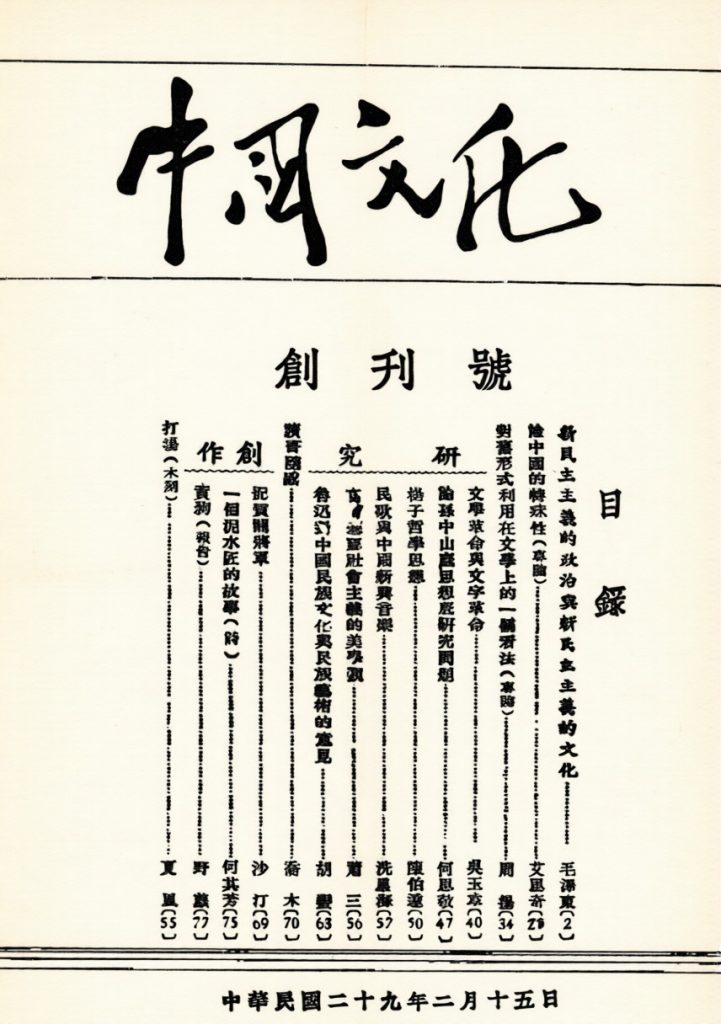 中國文化
創刊號
目錄
新民主主義的政治與新民主主義的文化 毛澤東(2)
論中國的特殊性(專論) 艾思奇(2
對舊形式利用在文學上的一個看法(專論) 周揚(34)
研究
文學革命與文字革命 吳玉章(40)
論孫中山底思想底研究問題 何思敬(47)
楊子哲學思想 陳伯達(50)
民歌與中國新興音樂 冼星海(57)
社會主義的美學觀 蕭三(56)
魯迅對中國民族文化與民族藝術的意見 胡蠻(63)
讀書隨感 喬木(70)
創作
記賀龍將軍 沙打(69)
一個泥水匠的故事(詩) 何其芳(75)
賣狗(報告) 野蕻(77)
打場(木刻) 夏風(55)
中華民國二十九年二月十五日